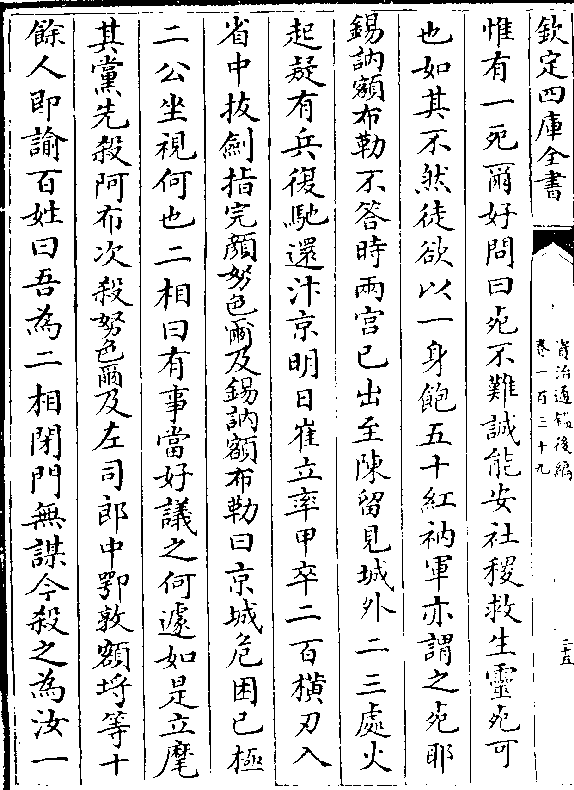 欽定四庫全書
資治通鑑後編
卷一百三十九
二十五
惟有一死爾好問曰死不難誠能安社稷救生靈死可
也如其不然徒欲以一身飽五十紅衲軍亦謂之死耶
錫訥額布勒不答時兩宮已出至陳留見城外二三處火
起疑有兵復馳還汴京明日崔立率甲卒二百橫刃入
省中拔劍指完顏努色爾及錫訥額布勒曰京城危困已極
二公坐視何也二相曰有事當好議之何遽如是立麾
其黨先殺阿布次殺努色爾及左司郎中鄂敦額埒等十
餘人即諭百姓曰吾為二相閉門無謀今殺之為汝一